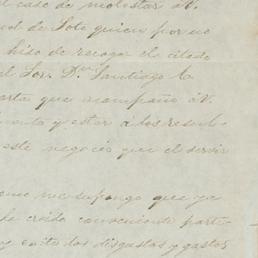 el caso de molestar á V.
de Soto quien por no
hizo de recoger el citado
al Sor. Dn. Santiago
carta que acompaño á V.
y estar á los resul-
este negocio que el servir
me supongo que ya
creido conveniente parti-
y evitados disgustos y gastos